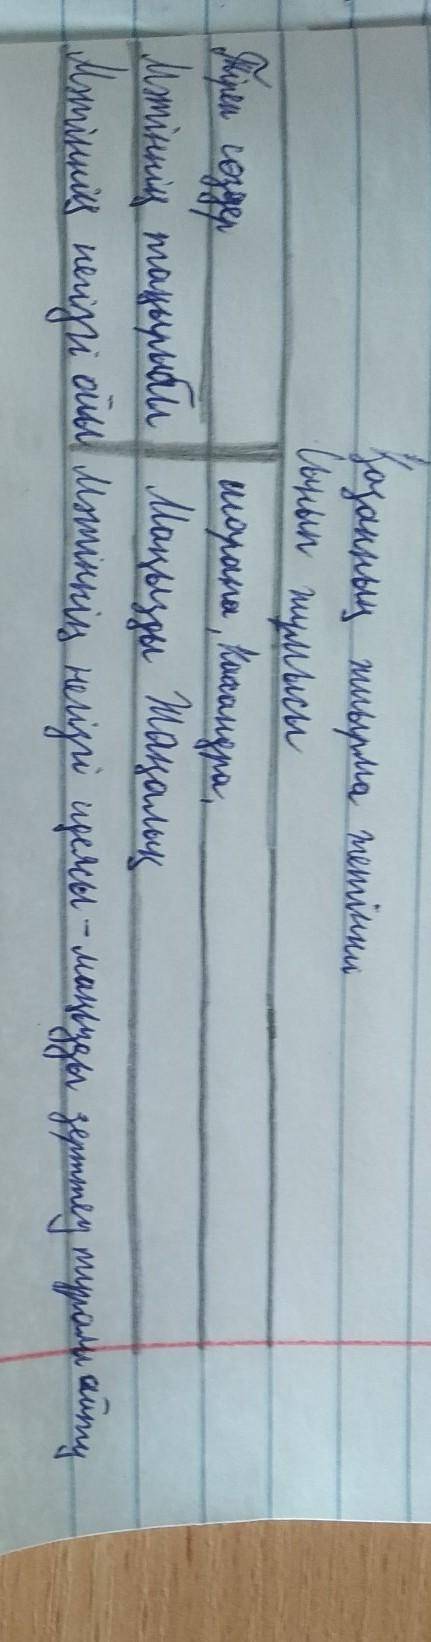 Қазанның жиырма жетінші
Сынып жұмысы
Тірек сөздер шорапа, Кассандра,
Мәтіннің тақырыбы Маңызды Жаңалық
Мәтіннің негізгі ойы Мәтіннің негізгі идеясы - маңызды зерттеу туралы айту